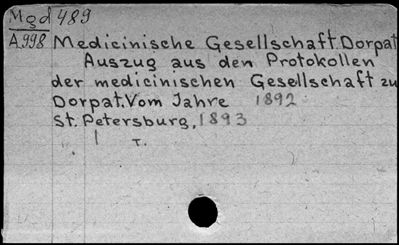 Mgd 489
A.998 Medicinische Gesellschaft.Dorpat
Auszug aus den Protokollen
der medicinischen Gesellschaft zu
Dorpat.Vom Jahre 1892
St. Petersburg, 1893
" . 1 T.